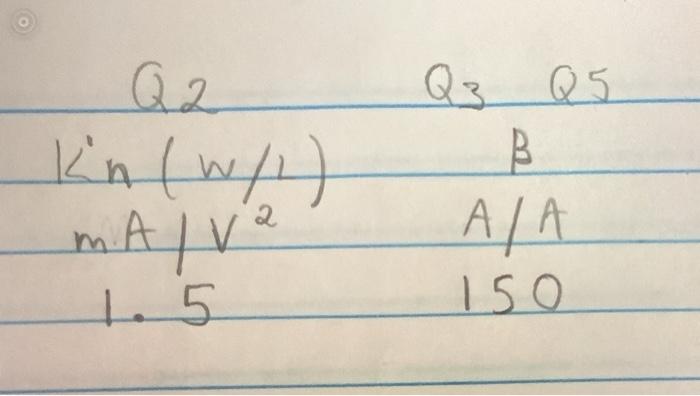 Q2 Q3 Q5
K'n (W/L) β
mA/V² A/A
1.5 150